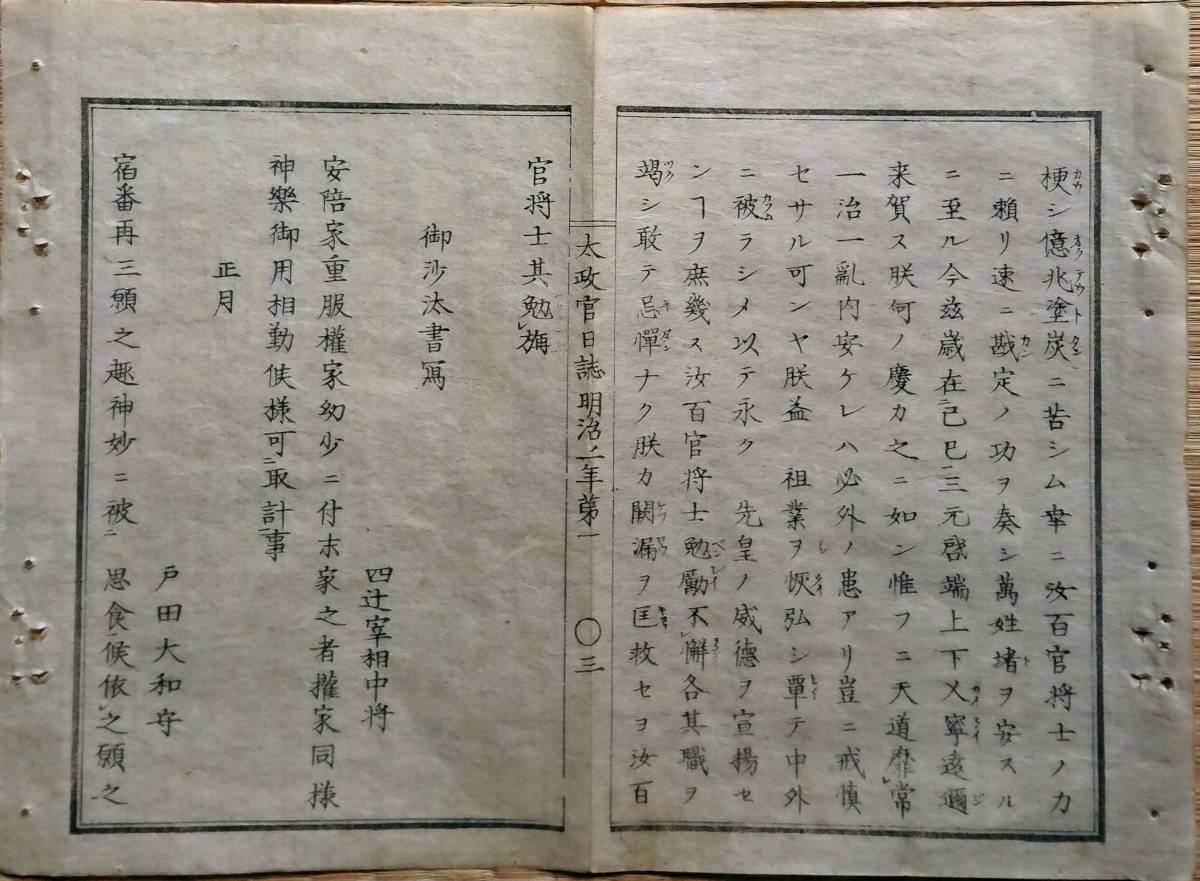 梗シ億兆塗炭ニ苦シム幸ニ汝百官将士ノカ
ニ頼リ速ニ戡定ノ功ヲ奏シ萬姓堵ヲ安スル
ニ至ル今茲歳在己巳三元啓端上下乂寧遠邇
来賀ス朕何ノ慶カ之ニ如ン惟フニ天道靡常
一治一亂内安ケレハ必外ノ患アリ豈ニ戒慎
セサル可ンヤ朕益 祖業ヲ恢弘シ覃テ中外
ニ被ラシメ以テ永ク 先皇ノ威德ヲ宣揚セ
ンヿヲ庶幾ス汝百官将士勉勵不懈各其職ヲ
竭シ敢テ忌憚ナク朕カ闕漏ヲ匡救セヨ汝百
太政官日誌明治二年第一 〇三
官将士其勉旃
御沙汰書寫
四辻宰相中将
安陪家重服權家幼少ニ付末家之者權家同様
神樂御用相勤候様可取計事
正月
戸田大和守
宿番再三願之趣神妙ニ被 思食候依之願之